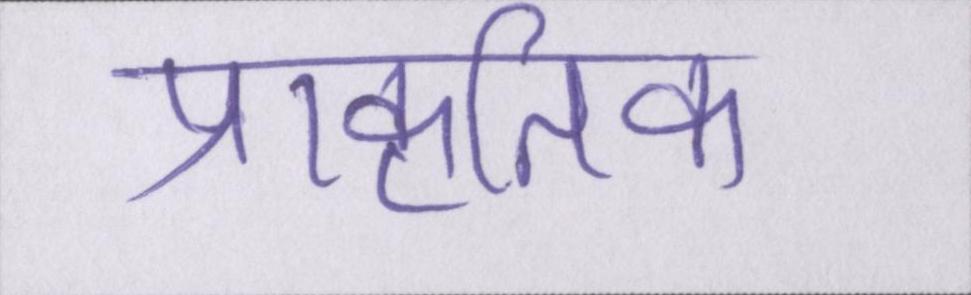 प्राकृतिक